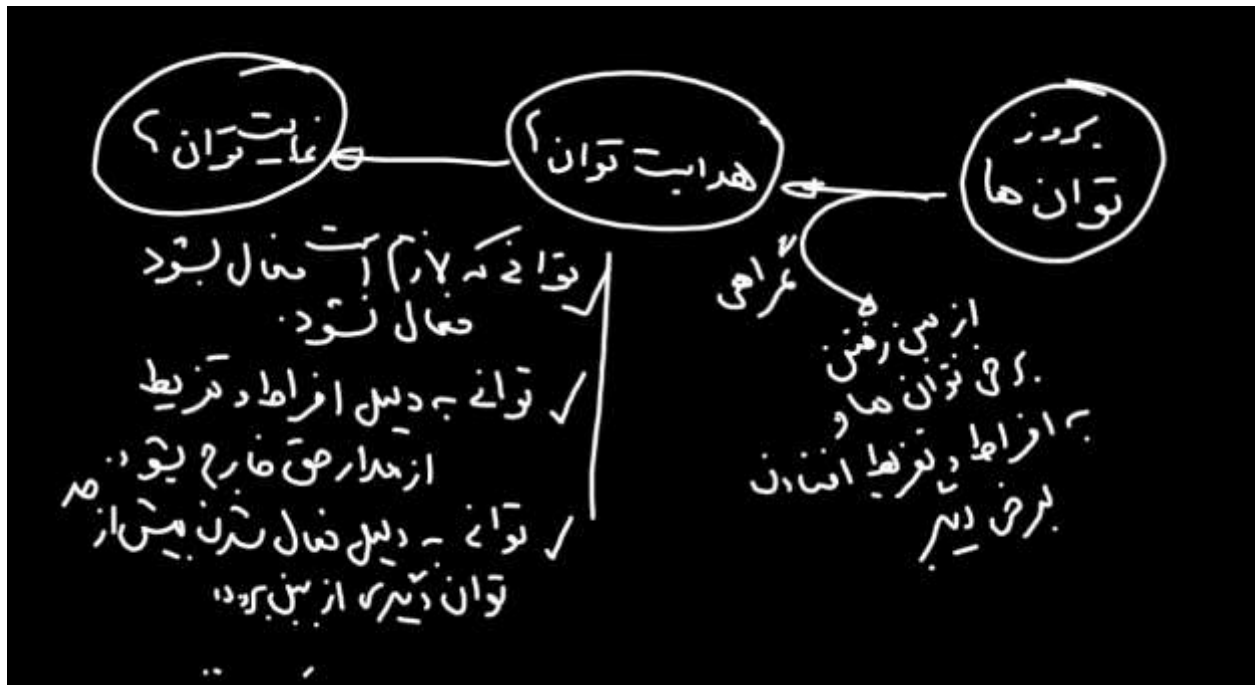 بروز
توان ها
هدایت توان؟
نهایت توان؟
گمراهی
از بین رفتن
برخی توان ها و
به افراط و تفریط افتادن
برخی دیگر
توانی که لازم است فعال بشود
فعال نشود.
توانی به دلیل افراط و تفریط
از مدار حق خارج بشود.
توانی به دلیل فعال شدن بیش از حد
توان دیگری از بین برود.